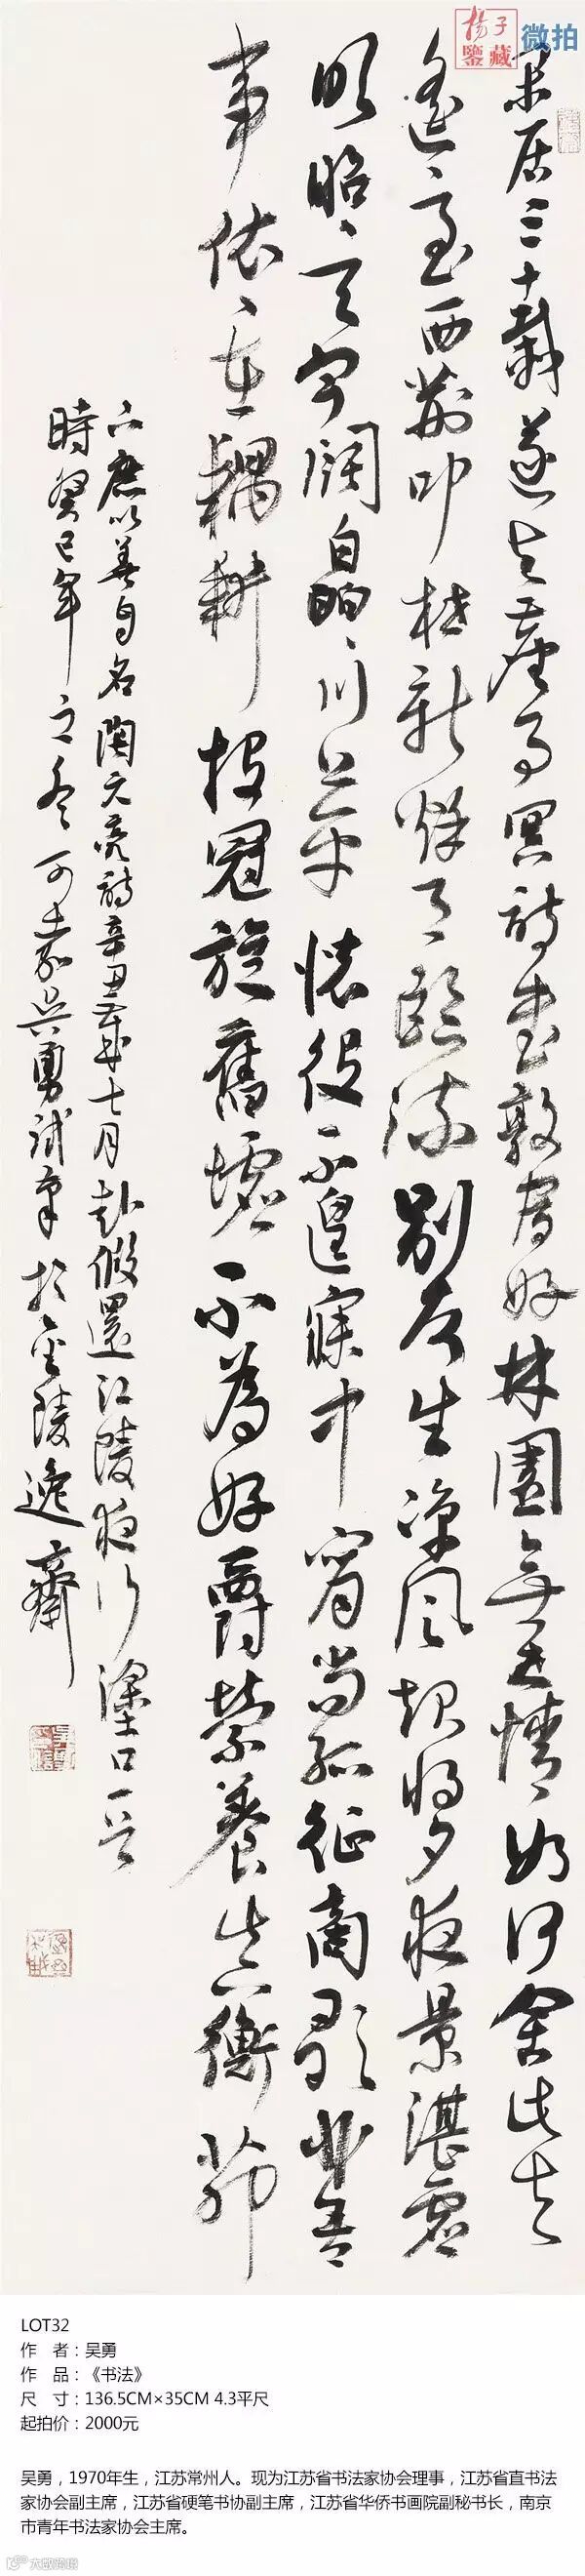 楊子鑒藏 微拍
閒居三十載遂與塵事冥詩書敦宿好林園無世情如何舍此去
遙、至西荊叩枻新秋月臨流別友生涼風起將夕夜景湛虛
明昭、天宇闊皛、川上平懷役不遑寐中宵尚孤征商歌非吾
事依、在耦耕投冠旋舊墟不為好爵縈養真衡茆
下庶以善自名陶元亮詩辛丑歲七月赴假還江陵夜行塗口一首
時癸巳年之冬可嘉吳勇試筆於金陵逸齋
LOT32
作 者：吴勇
作 品：《书法》
尺 寸：136.5CM×35CM 4.3平尺
起拍价：2000元
吴勇，1970年生，江苏常州人。现为江苏省书法家协会理事，江苏省直书法
家协会副主席，江苏省硬笔书协副主席，江苏省华侨书画院副秘书长，南京
市青年书法家协会主席。
大数跨境